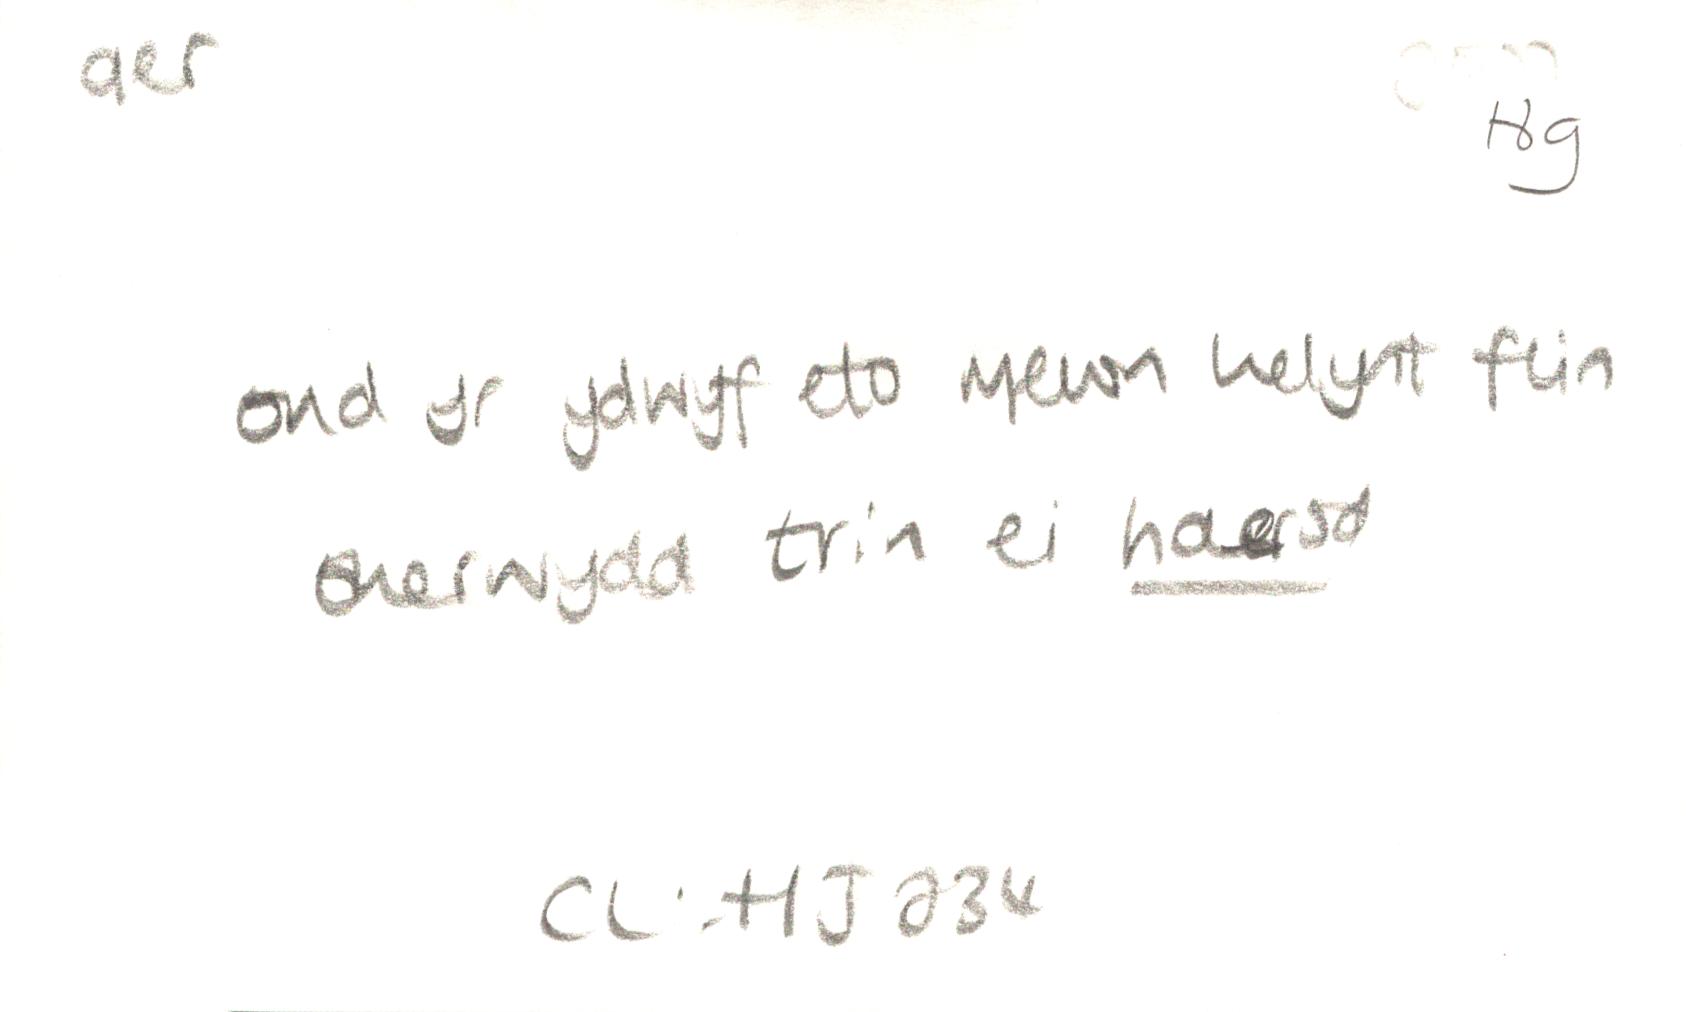 aer
Hg
ond yr ydwyf eto mewn helynt flin
oherwydd trin ei
CLl: HJ 234